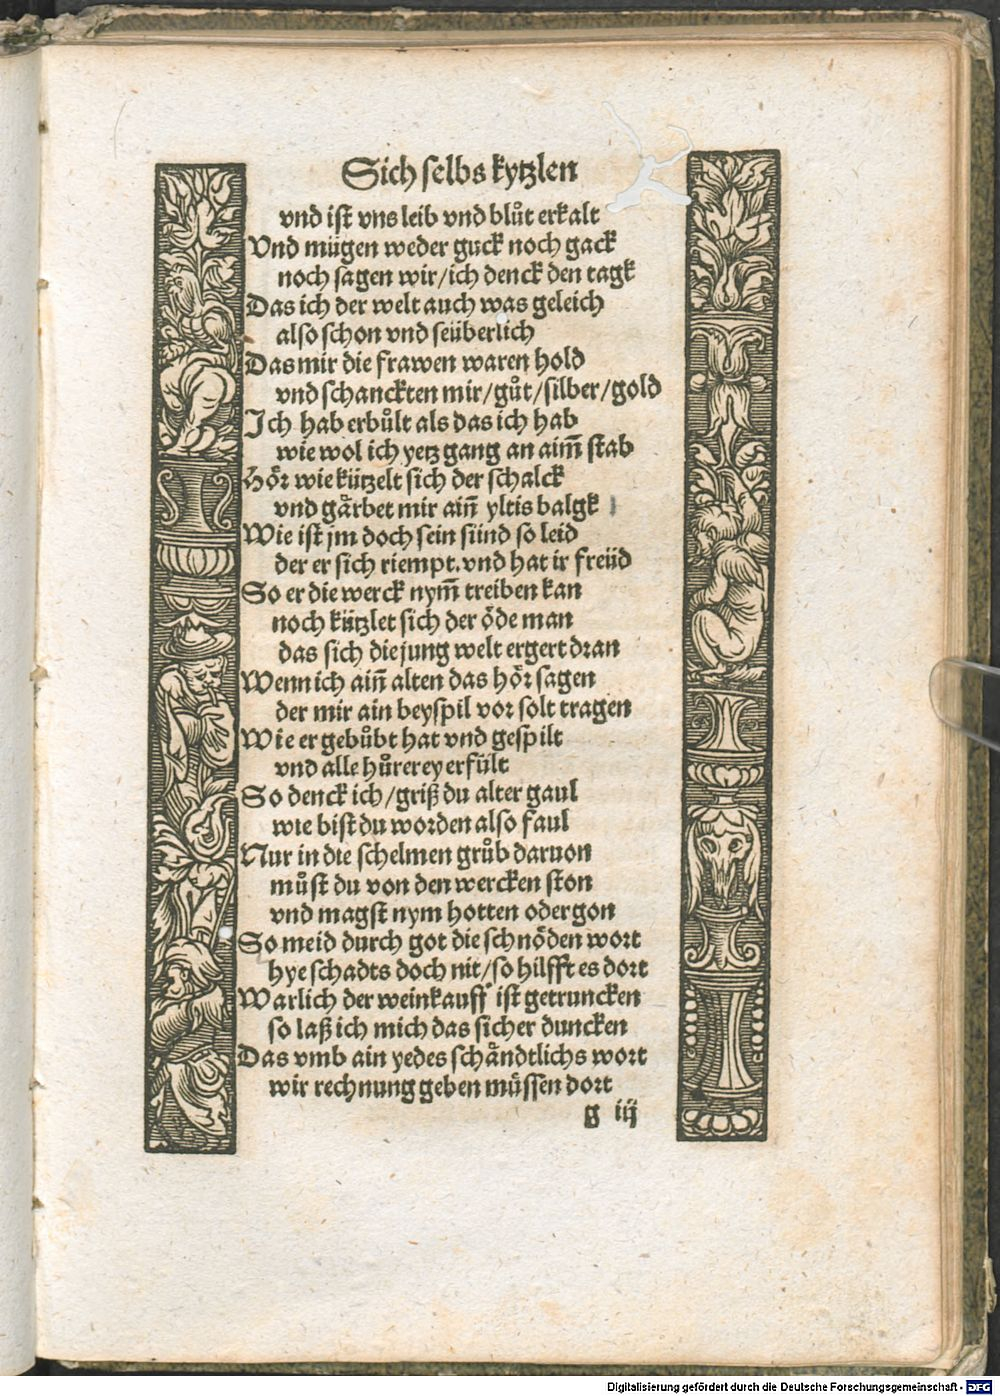 Sich selbs kytzlen
vnd ist vns leib vnd blůt erkalt
Vnd mügen weder guck noch gack
noch sagen wir/ich denck den tagk
Das ich der welt auch was geleich
also schon vnd seüberlich
Das mir die frawen waren hold
vnd schanckten mir/gůt/silber/gold
Ich hab erbůlt als das ich hab
wie wol ich yetz gang an aim̄ stab
Hör wie kützelt sich der schalck
vnd gårbet mir ain̄ yltis balgk
Wie ist jm doch sein sünd so leid
der er sich riempt. vnd hat ir freüd
So er die werck nym̄ treiben kan
noch kützlet sich der öde man
das sich die jung welt ergert dran
Wenn ich ain̄ alten das hör sagen
der mir ain beyspil vor solt tragen
Wie er gebůbt hat vnd gespilt
vnd alle hůrerey erfült
So denck ich/griß du alter gaul
wie bist du worden also faul
Nur in die schelmen grůb daruon
můst du von den wercken ston
vnd magst nym hotten oder gon
So meid durch got die schnöden wort
hye schadts doch nit/so hilfft es dort
Warlich der weinkauff ist getruncken
so laß ich mich das sicher duncken
Das vmb ain yedes schåndtlichs wort
wir rechnung geben müssen dort
g iij
Digitalisierung gefördert durch die Deutsche Forschungsgemeinschaft - DFG